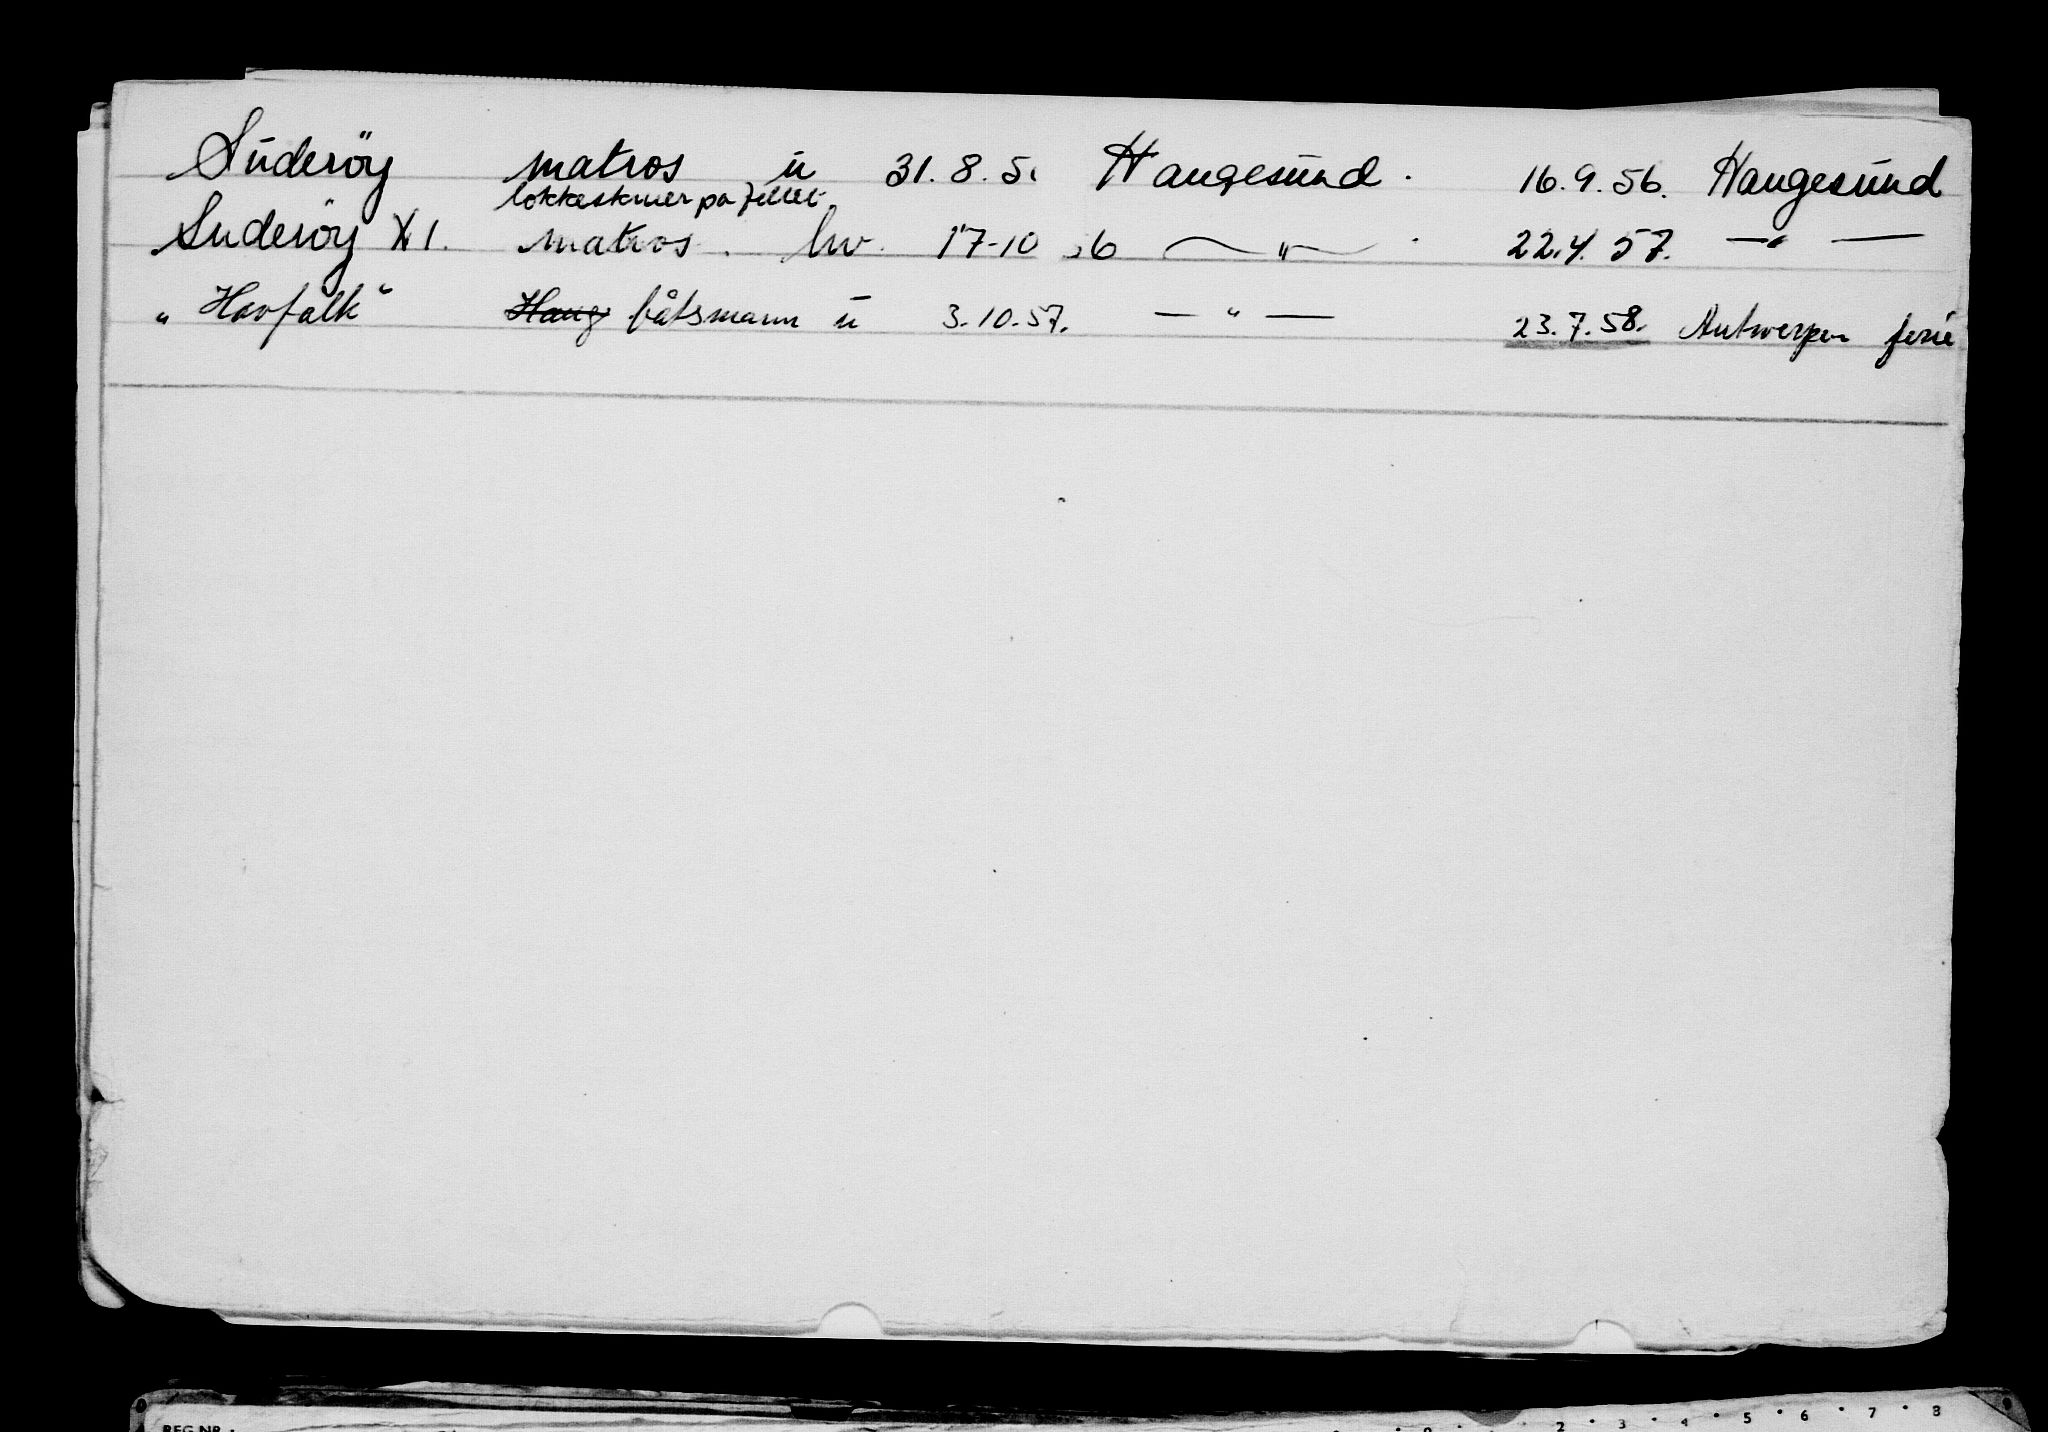 Suderöy matros u 31.8.5. Haugesund. 16.9.56. Haugesund
på feltet
Suderöy XI. matros. hv. 17-10 56 — " — . 22.4.57. — " —
"Havfalk" Haug båtsmann u 3.10.57. — " — 23.7.58. Antwerpen ferie
REG.NR.
2 • 3 • 4 • 5 • 6 • 7 • 8